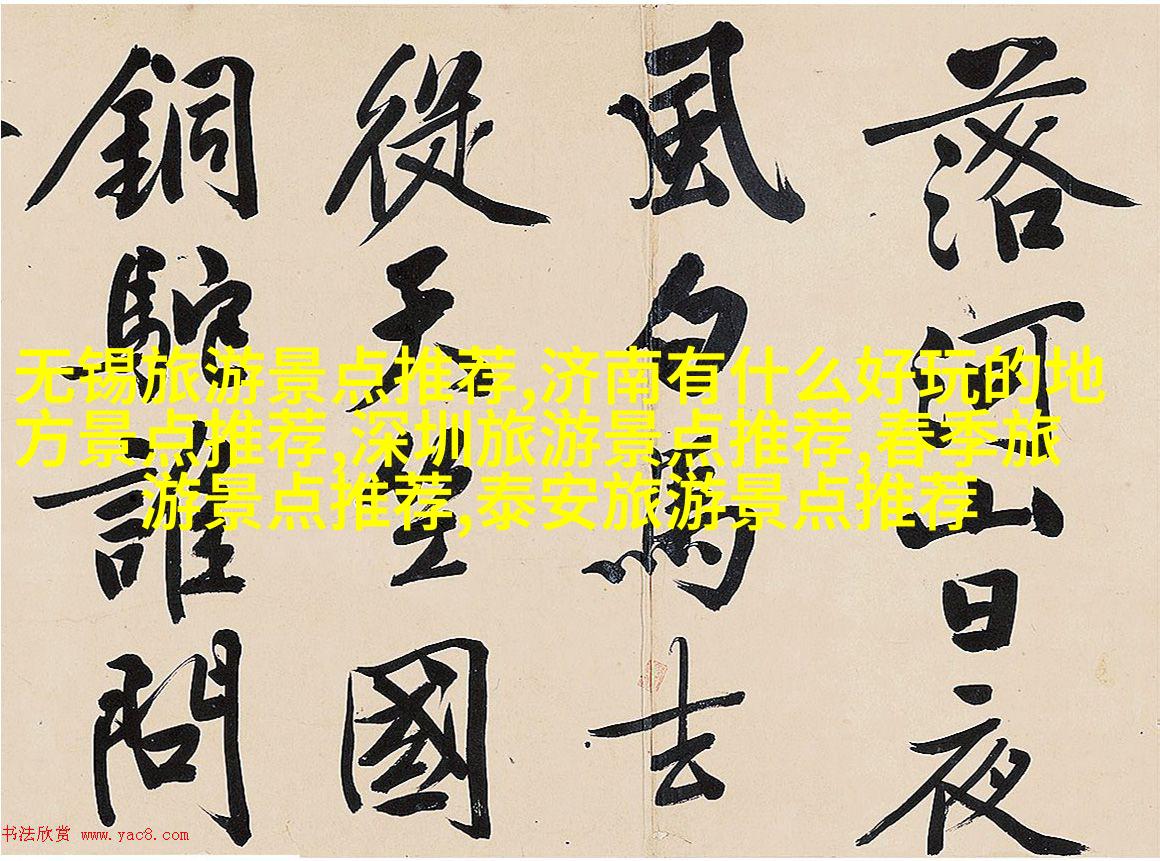 落河山日夜
風白馬去
從天竺國
銅駝誰問
无锡旅游景点推荐,济南有什么好玩的地
方景点推荐,深圳旅游景点推荐,春季旅
游景点推荐,泰安旅游景点推荐
书法欣赏 www.yac8.com